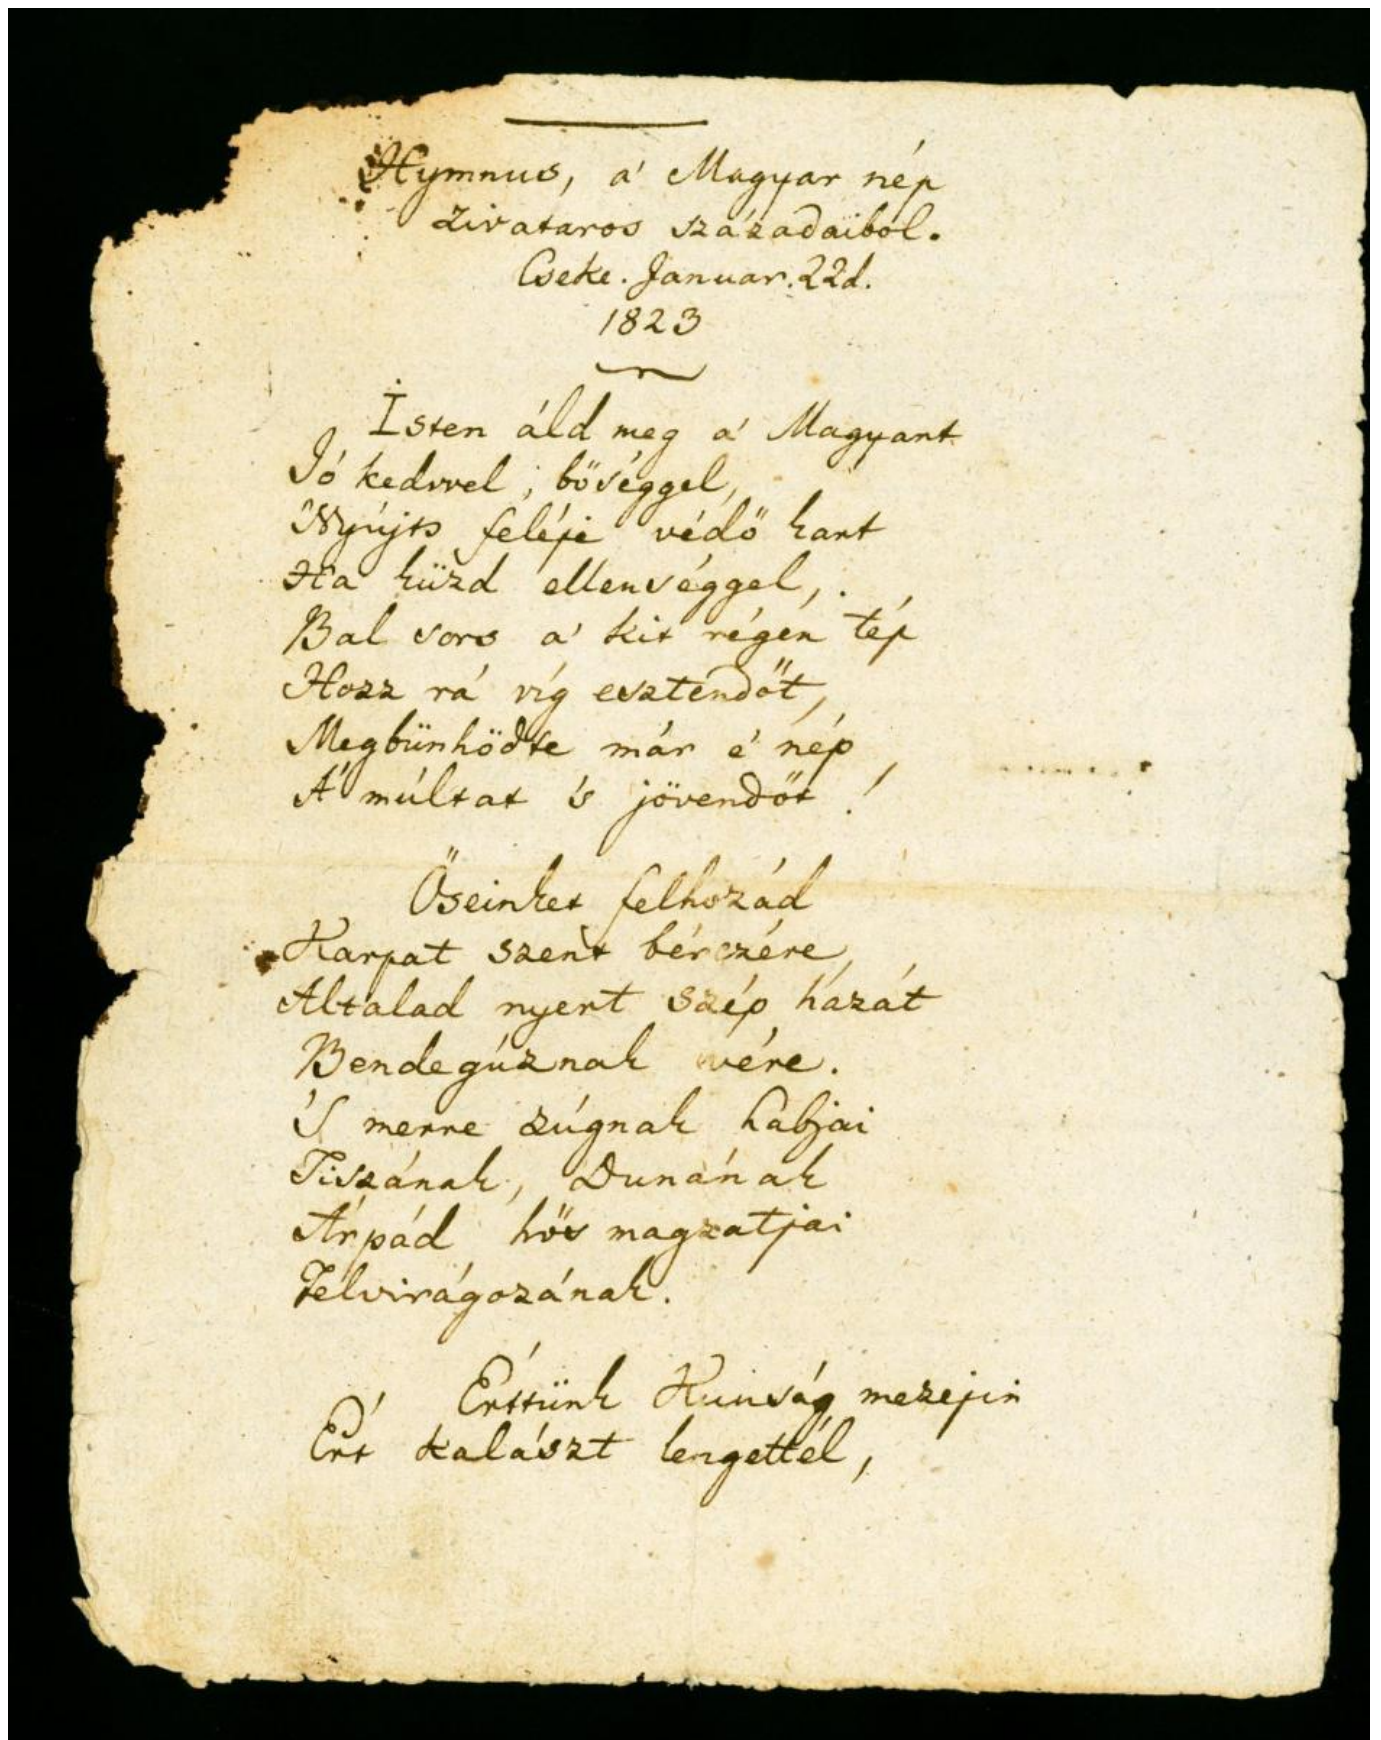 Hymnus, a' Magyar nép
zivataros századaiból.
Cseke. Januar. 22d.
1823
Isten áld meg a' Magyart
Jó kedvvel, bőséggel,
Nyújts feléje védő kart
Ha küzd ellenséggel,
Bal sors a' kit régen tép
Hozz rá víg esztendőt,
Megbünhödte már e' nép
A' múltat 's jövendőt!
Őseinket felhozád
Kárpát szent bérczére,
Általad nyert szép hazát
Bendegúznak vére.
'S merre zúgnak habjai
Tiszának, Dunának
Árpád hős magzatjai
Felvirágozának.
Érttünk Kunság mezején
Ért kalászt lengettél,